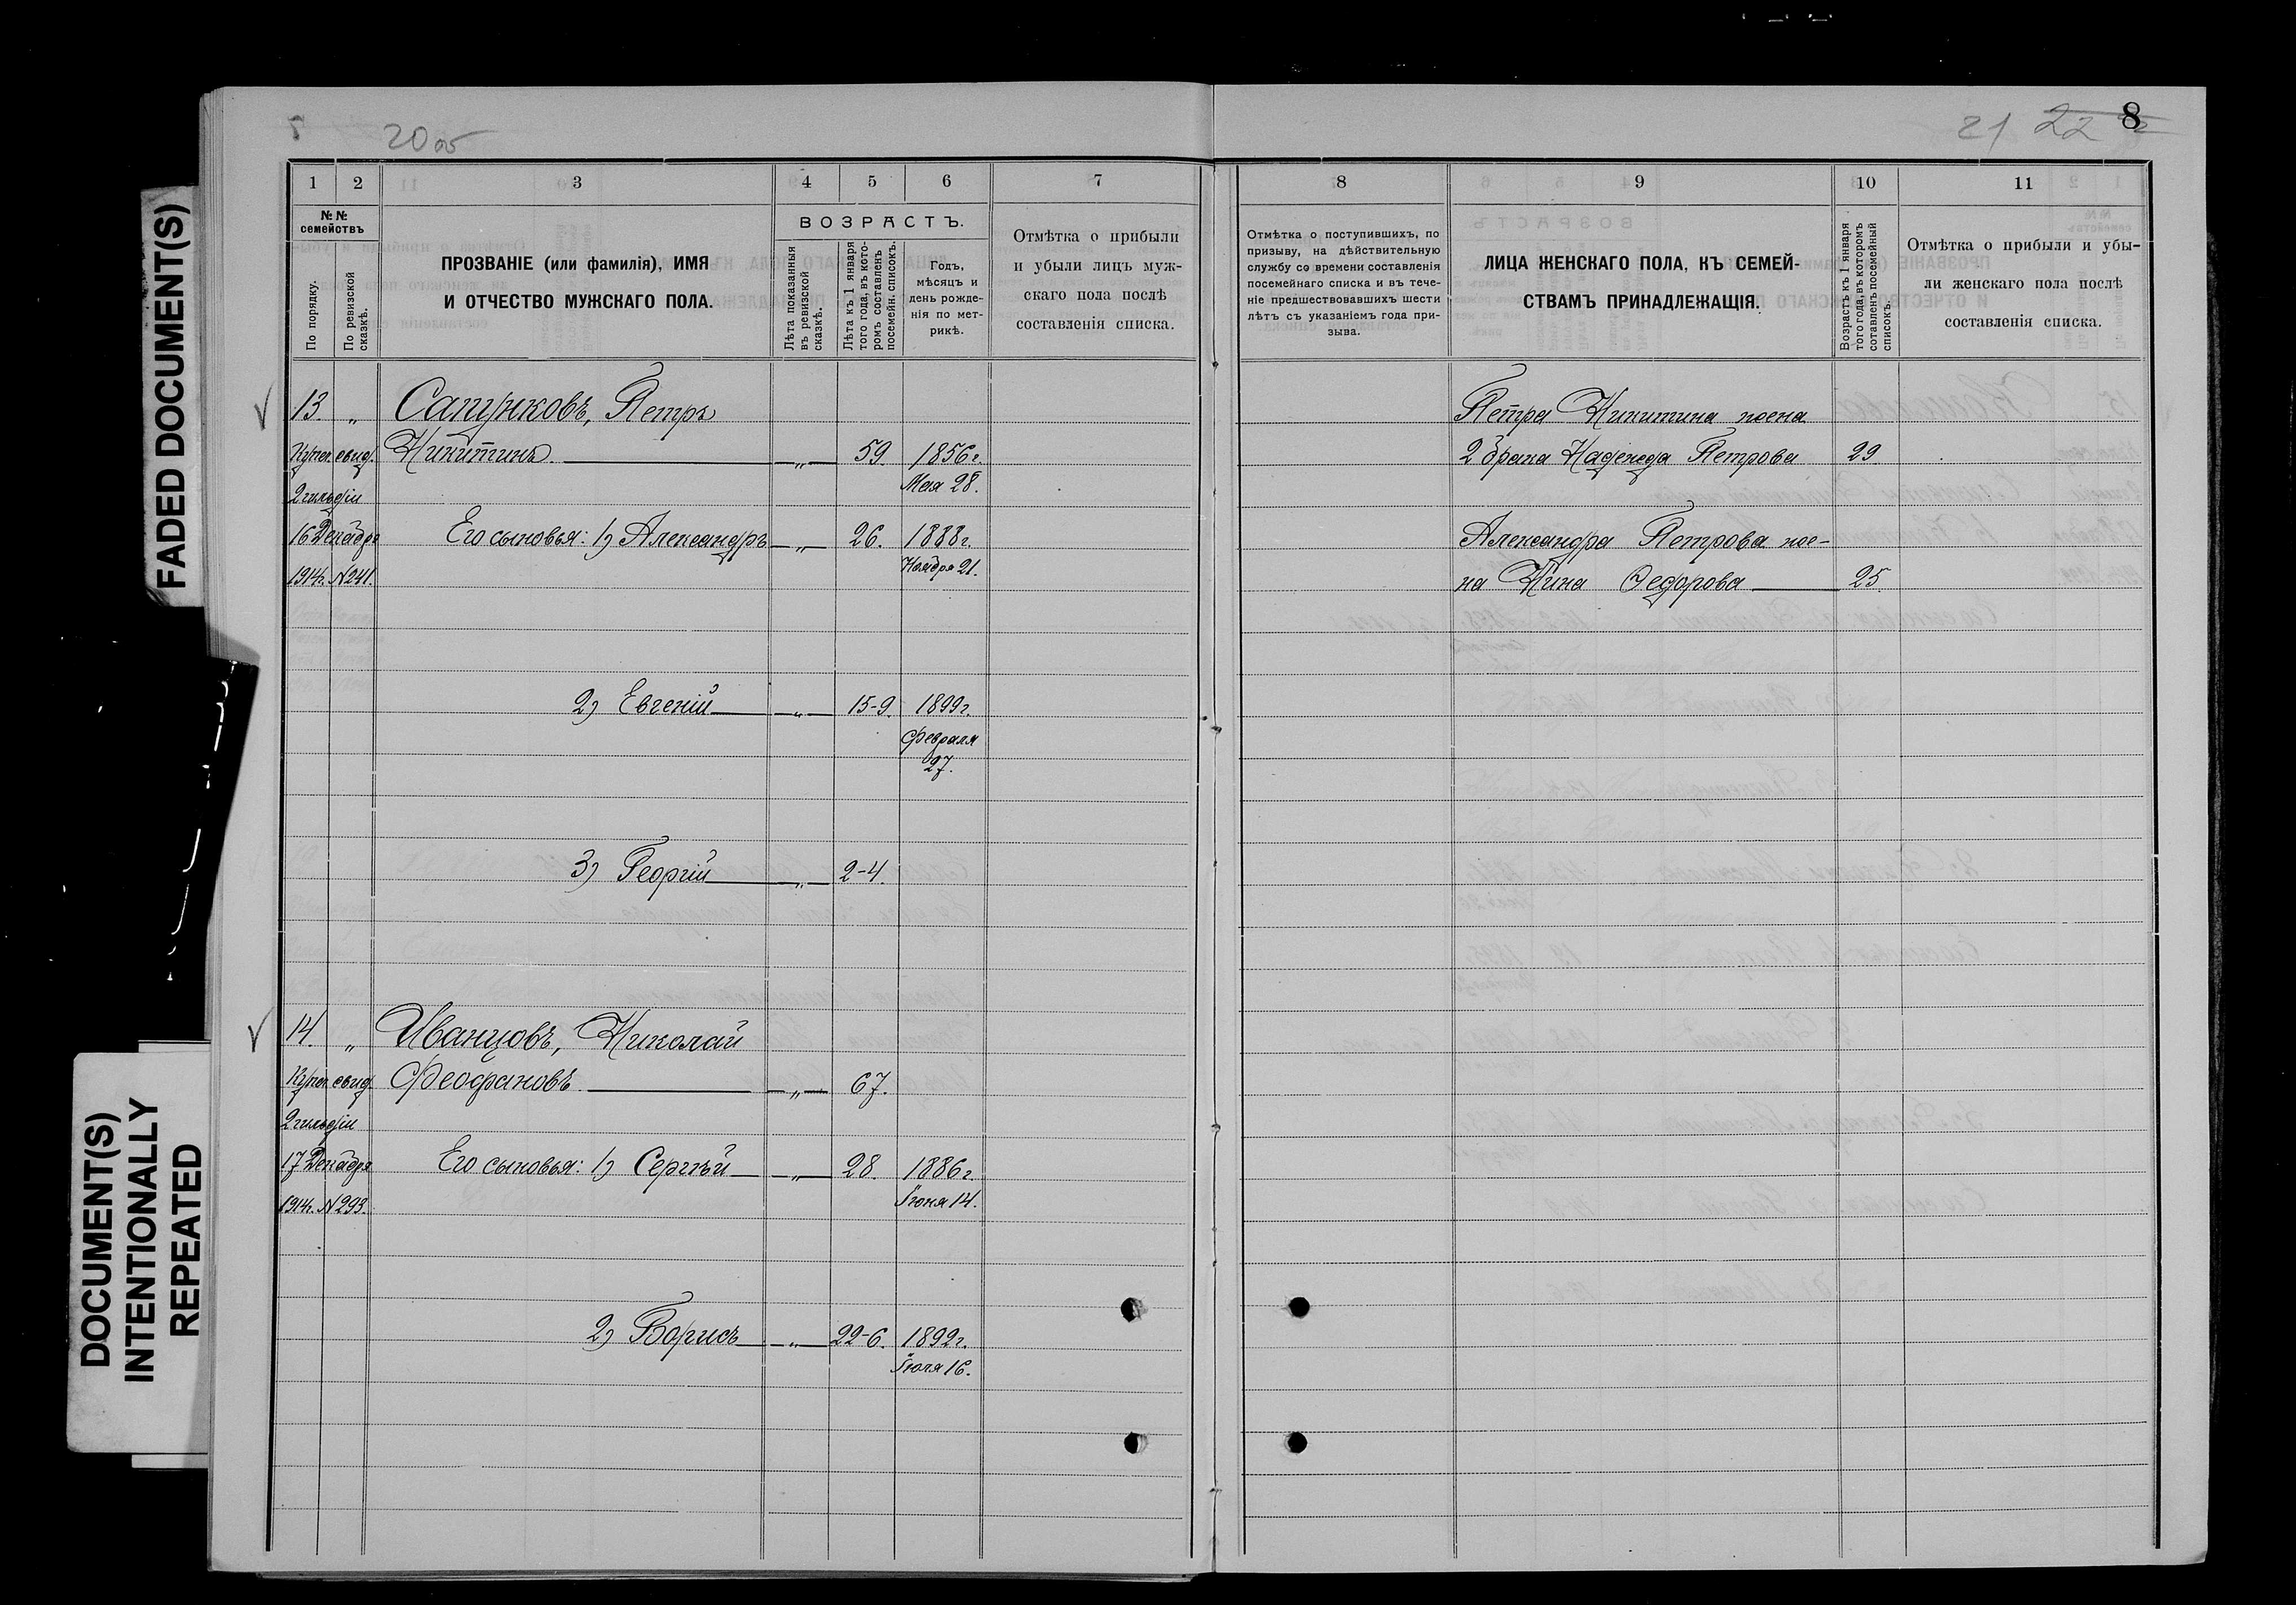 FADED DOCUMENT(S)
DOCUMENT(S)
INTENTIONALLY
REPEATED
20 об
1 2 3 4 5 6 7
№№
семействъ
По порядку.
По ревизской
сказкѣ.
ПРОЗВАНІЕ (или фамилія), ИМЯ
И ОТЧЕСТВО МУЖСКАГО ПОЛА.
ВОЗРАСТЪ.
Лѣта показанныя
въ ревизской
сказкѣ.
Лѣта къ 1 января
того года, въ кото-
ромъ составленъ
посемейн. списокъ.
Годъ,
мѣсяцъ и
день рожде-
нія по мет-
рикѣ.
Отмѣтка о прибыли
и убыли лицъ муж-
скаго пола послѣ
составленія списка.
13. " Сапунковъ, Петръ
Купеч. свид. Никитинъ " 59. 1856 г.
2 гильдіи Мая 28.
16 Декабря Его сыновья: 1) Александръ " 26. 1888 г.
1914 г. N 241. Ноября 21.
2) Евгеній " 15-9. 1899 г.
Февраля
27.
3) Георгій " 2-4.
14. " Иванцовъ, Николай
Купеч. свид. Феофановъ " 67.
2 гильдіи
17 Декабря Его сыновья: 1) Сергѣй " 28. 1886 г.
1914 г. N 293. Іюня 14.
2) Борисъ " 22-6. 1892 г.
Іюля 16.
21 22 8
8 9 10 11
Отмѣтка о поступившихъ, по
призыву, на дѣйствительную
службу со времени составленія
посемейнаго списка и въ тече-
ніе предшествовавшихъ шести
лѣтъ съ указаніемъ года при-
зыва.
ЛИЦА ЖЕНСКАГО ПОЛА, КЪ СЕМЕЙ-
СТВАМЪ ПРИНАДЛЕЖАЩІЯ.
Возрастъ къ 1 января
того года, въ которомъ
составленъ посемейный
списокъ.
Отмѣтка о прибыли и убы-
ли женскаго пола послѣ
составленія списка.
Петра Никитина жена
2 брака Надежда Петрова 29
Александра Петрова же-
на Нина Ѳедорова 25